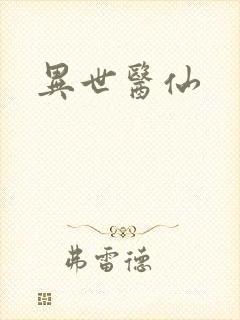 異世醫仙
弗雷德